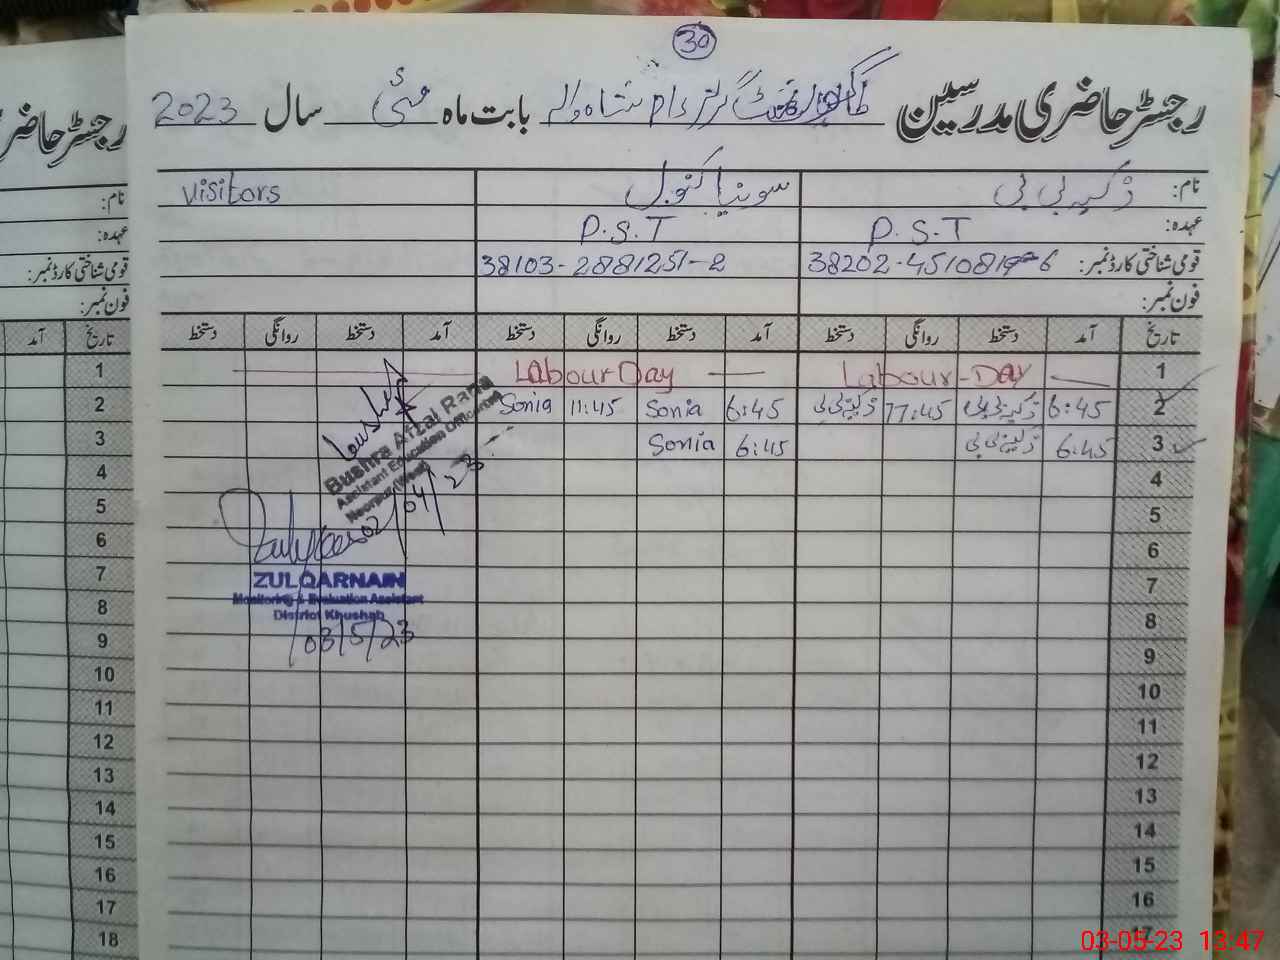 30
رجسٹر حاضری مدرسین گورنمنٹ گرلز دام شاہ والہ بابت ماہ مئی سال 2023
نام: ذکیہ بی بی سونیا کنول Visitors
عہدہ: P.S.T P.S.T
قومی شناختی کارڈ نمبر: 38202-4510819-6 38103-2881251-2
فون نمبر:
تاریخ آمد دستخط روانگی دستخط آمد دستخط روانگی دستخط آمد دستخط روانگی دستخط
1 Labour-Day Labour Day
2 6:45 ذکیہ بی بی 11:45 ذکیہ بی بی 6:45 Sonia 11:45 Sonia
3 6:45 ذکیہ بی بی 6:45 Sonia
4
5
6
7
8
9
10
11
12
13
14
15
16
17
Bushra Afzal Rana
Assistant Education Officer
Noorpur
02/04/23
ZULQARNAIN
Monitoring & Evaluation Assistant
District Khushab
03/5/23
رجسٹر حاضر
نام:
عہدہ:
قومی شناختی کارڈ نمبر:
فون نمبر:
تاریخ آمد
1
2
3
4
5
6
7
8
9
10
11
12
13
14
15
16
17
18
03-05-23 13:47